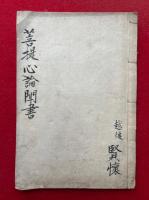 菩提心論聞書
越後
賢懐